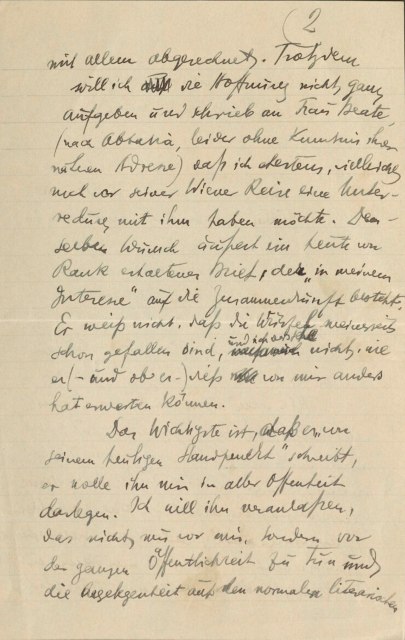 (2
mit allem abgerechnet. Trotzdem
will ich die Hoffnung nicht ganz
aufgeben und schrieb an Frau Beate,
(nach Abbazia, leider ohne Kenntnis ihrer
nähern Adresse) daß ich ehestens, vielleicht
noch vor seiner Wiener Reise eine Unter-
redung mit ihm haben möchte. Den-
selben Wunsch äußert ein heute von
Rank erhaltener Brief, der „in meinem
Interesse" auf die Zusammenkunft besteht.
Er weiß nicht, daß die Würfel meinerseits
schon gefallen sind, und ich nicht, wie
er (– und ob er –) dieß von mir anders
hat erwarten können.
Das Wichtigste ist, daß er von
seinem heutigen „Standpunkt" schreibt,
er wolle ihn mir in aller Offenheit
darlegen. Ich will ihn veranlaßen,
das nicht nur vor mir, sondern vor
der ganzen Öffentlichkeit zu tun und
die Angelegenheit auf den normalen literarischen